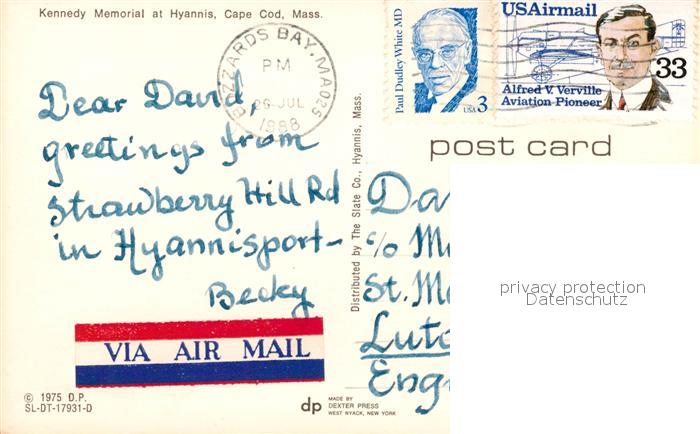 Kennedy Memorial at Hyannis, Cape Cod, Mass.
BUZZARDS BAY, MA 025
PM
26 JUL
1988
Paul Dudley White MD
USA 3
USAirmail
33
Alfred V. Verville
Aviation Pioneer
post card
Dear David,
greetings from
Strawberry Hill Rd
in Hyannisport-
Becky
VIA AIR MAIL
© 1975 D.P.
SL-DT-17931-D
Distributed by The Slate Co., Hyannis, Mass.
dp
MADE BY
DEXTER PRESS
WEST NYACK, NEW YORK
Da
c/o M
St. M
Luto
Eng
privacy protection
Datenschutz